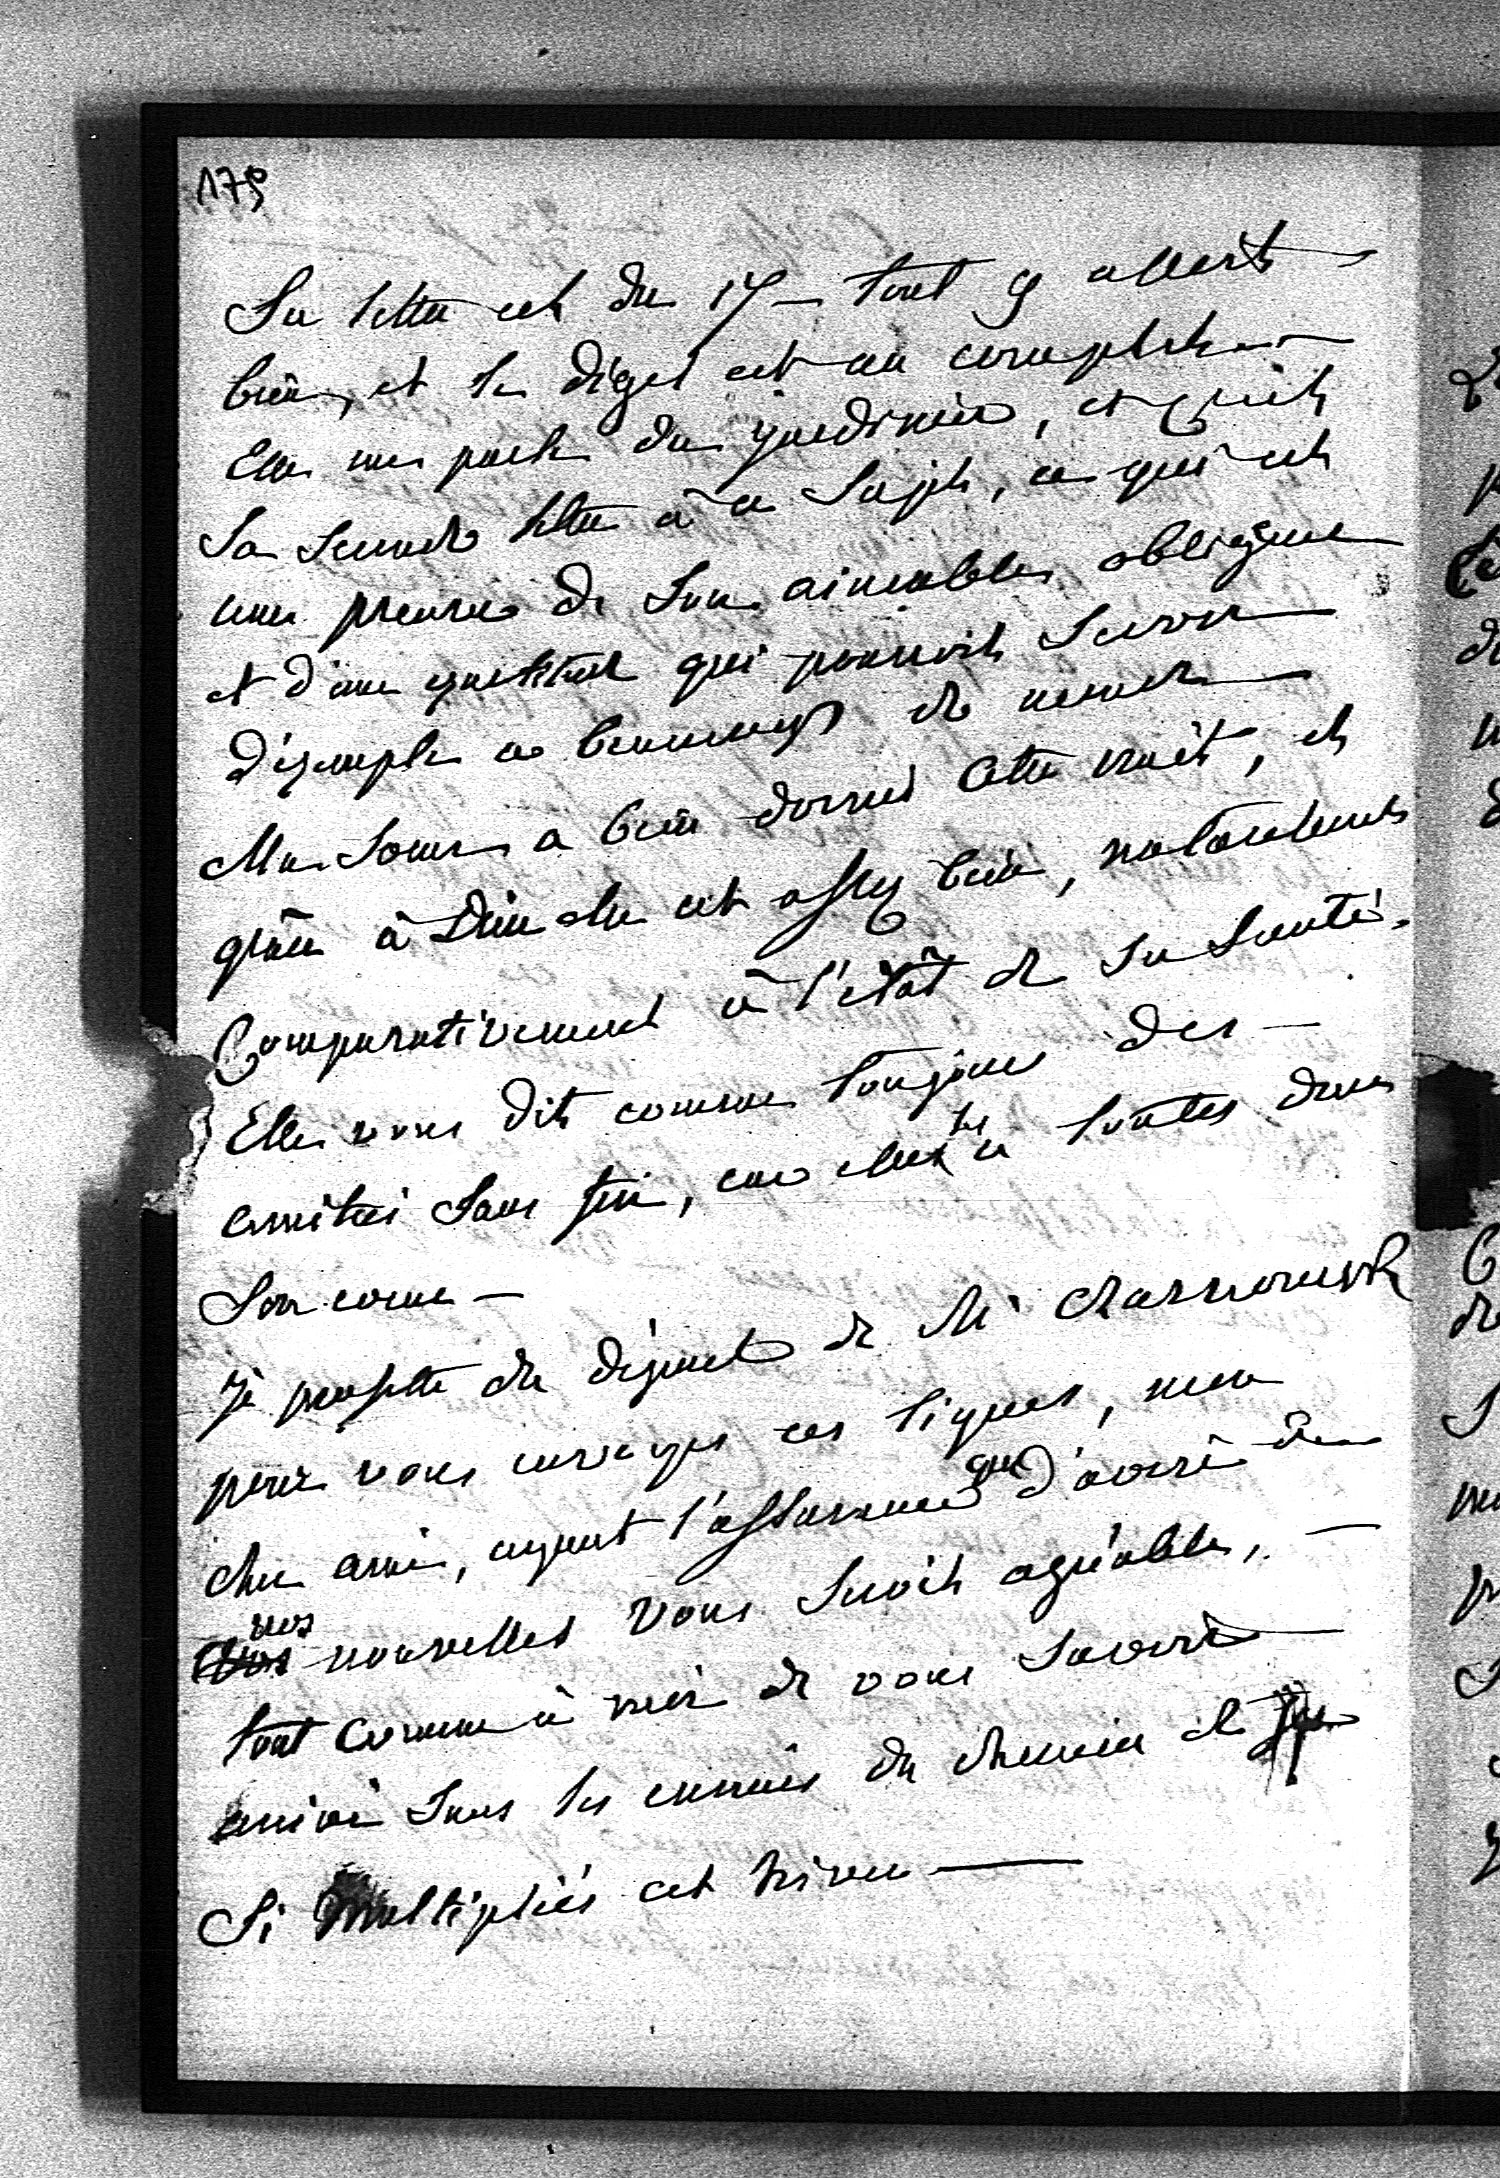 179
Sa lettre est du 17 — tout y alloit
bien, et le dégel est au complet —
Elle me parle du jardinier, et c'est
Sa seconde lettre à ce Sujet, ce qui est
une preuve de Son aimable obligence
et d'une exactitude qui pourroit Servir
d'éxemple a beaucoup de
Ma Soeur a bien dormi cette nuit, et
grâce à Dieu elle est assez bien, notament
Comparativement à l'état de Sa Santé.
Elle vous dit comme toujours des —
amitiés Sans fin, car elle les a toutes dans
Son coeur —
Je profite du départ de Mr
pour vous envoyer ces lignes, mon
cher ami, ayant l'assurance que d'avoir de
nos nouvelles vous Seroit agréable, —
tout comme à moi de vous Savoir —
arrivé Sans les ennuis du chemin
Si multipliés cet hiver —